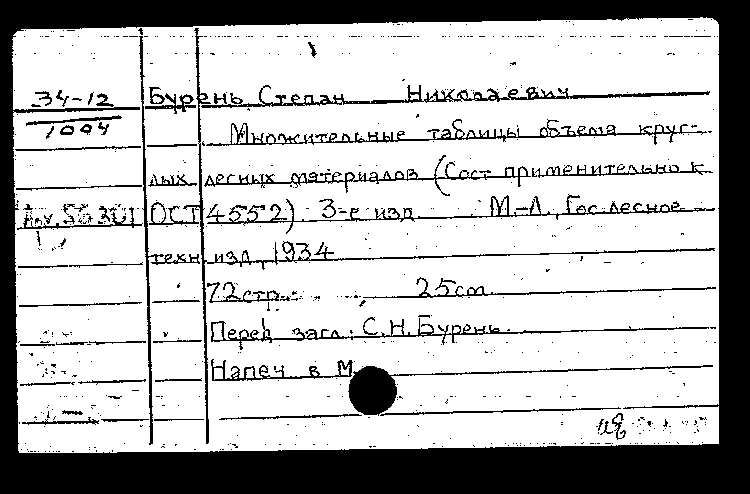 34-12 Бурень Степан Николаевич
1004 Множительные таблицы объема круг-
лых лесных материалов (Сост применительно к
ОСТ 4552). 3-е изд М.-Л., Гослесное
техн. изд., 1934
72 стр. 25 cm
Перед загл.: С.Н. Бурень.
Напеч в М